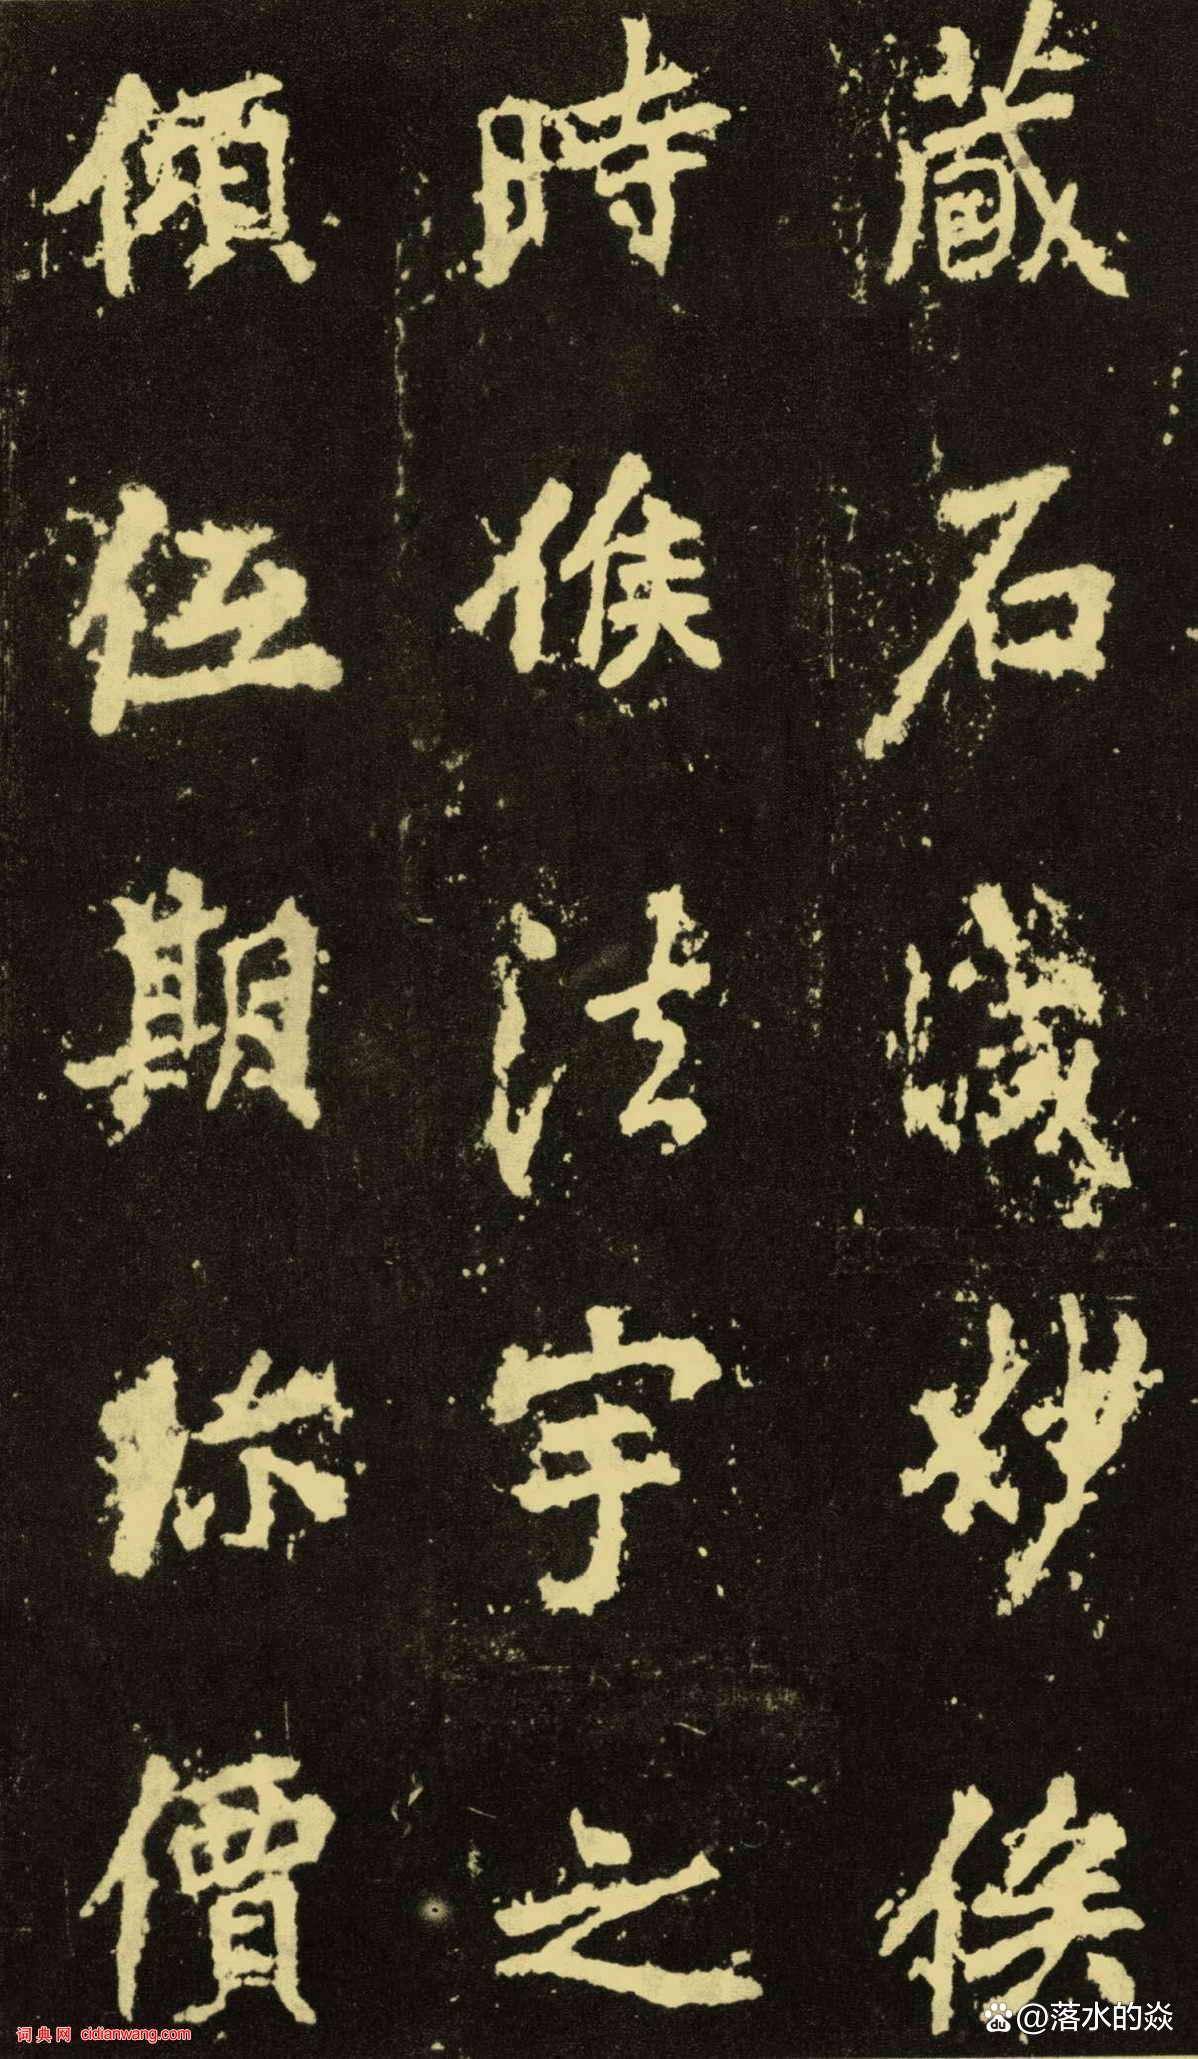 藏石妙俟
時候法宇之
傾低期珎價
词典网 cidianwang.com
@落水的焱